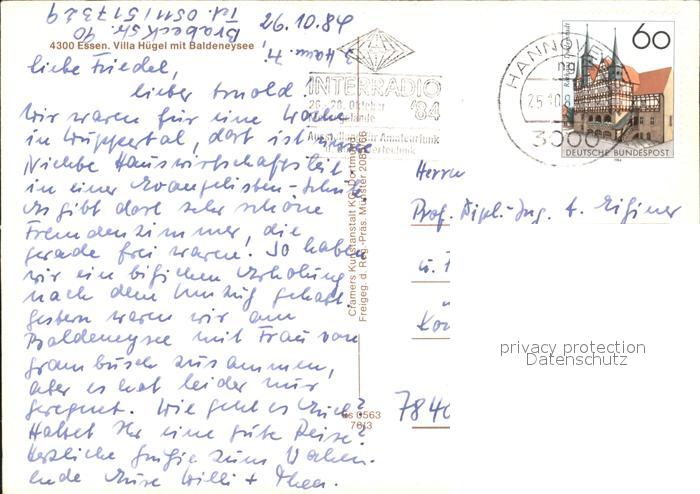 3 Hann. 71,
Brabeckstr. 40
Tel. 0511/517329
26.10.84
4300 Essen. Villa Hügel mit Baldeneysee
Liebe Friedel,
lieber Arnold.
Wir waren für eine Woche
in Wuppertal, dort ist eine
Nichte Hauswirtschaftsleit
in einer Evangelisten-Schule
Es gibt dort sehr schöne
Fremdenzimmer, die
gerade frei waren. So haben
wir ein bißchen Erholung
nach dem Umzug gehabt.
Gestern waren wir am
Baldeneysee mit Frau von
Grambusch zusammen,
aber es hat leider nur
geregnet. Wie geht es Euch?
Hattet Ihr eine gute Reise?
Herzliche Grüße zum Wochen-
ende Eure Willi + Thea.
INTERRADIO
'84
26.-28. Oktober
Ausstellung für Amateurfunk
HANNOVER
25.10.8
3000
60
DEUTSCHE BUNDESPOST
1984
Cramers Kunstanstalt KG, Dortmund
Freigeg. d. Reg.-Präs. Münster
Es 0563
76/3
Herrn
Prof. Dipl.-Ing. A.
u. F
Kön
7840
privacy protection
Datenschutz